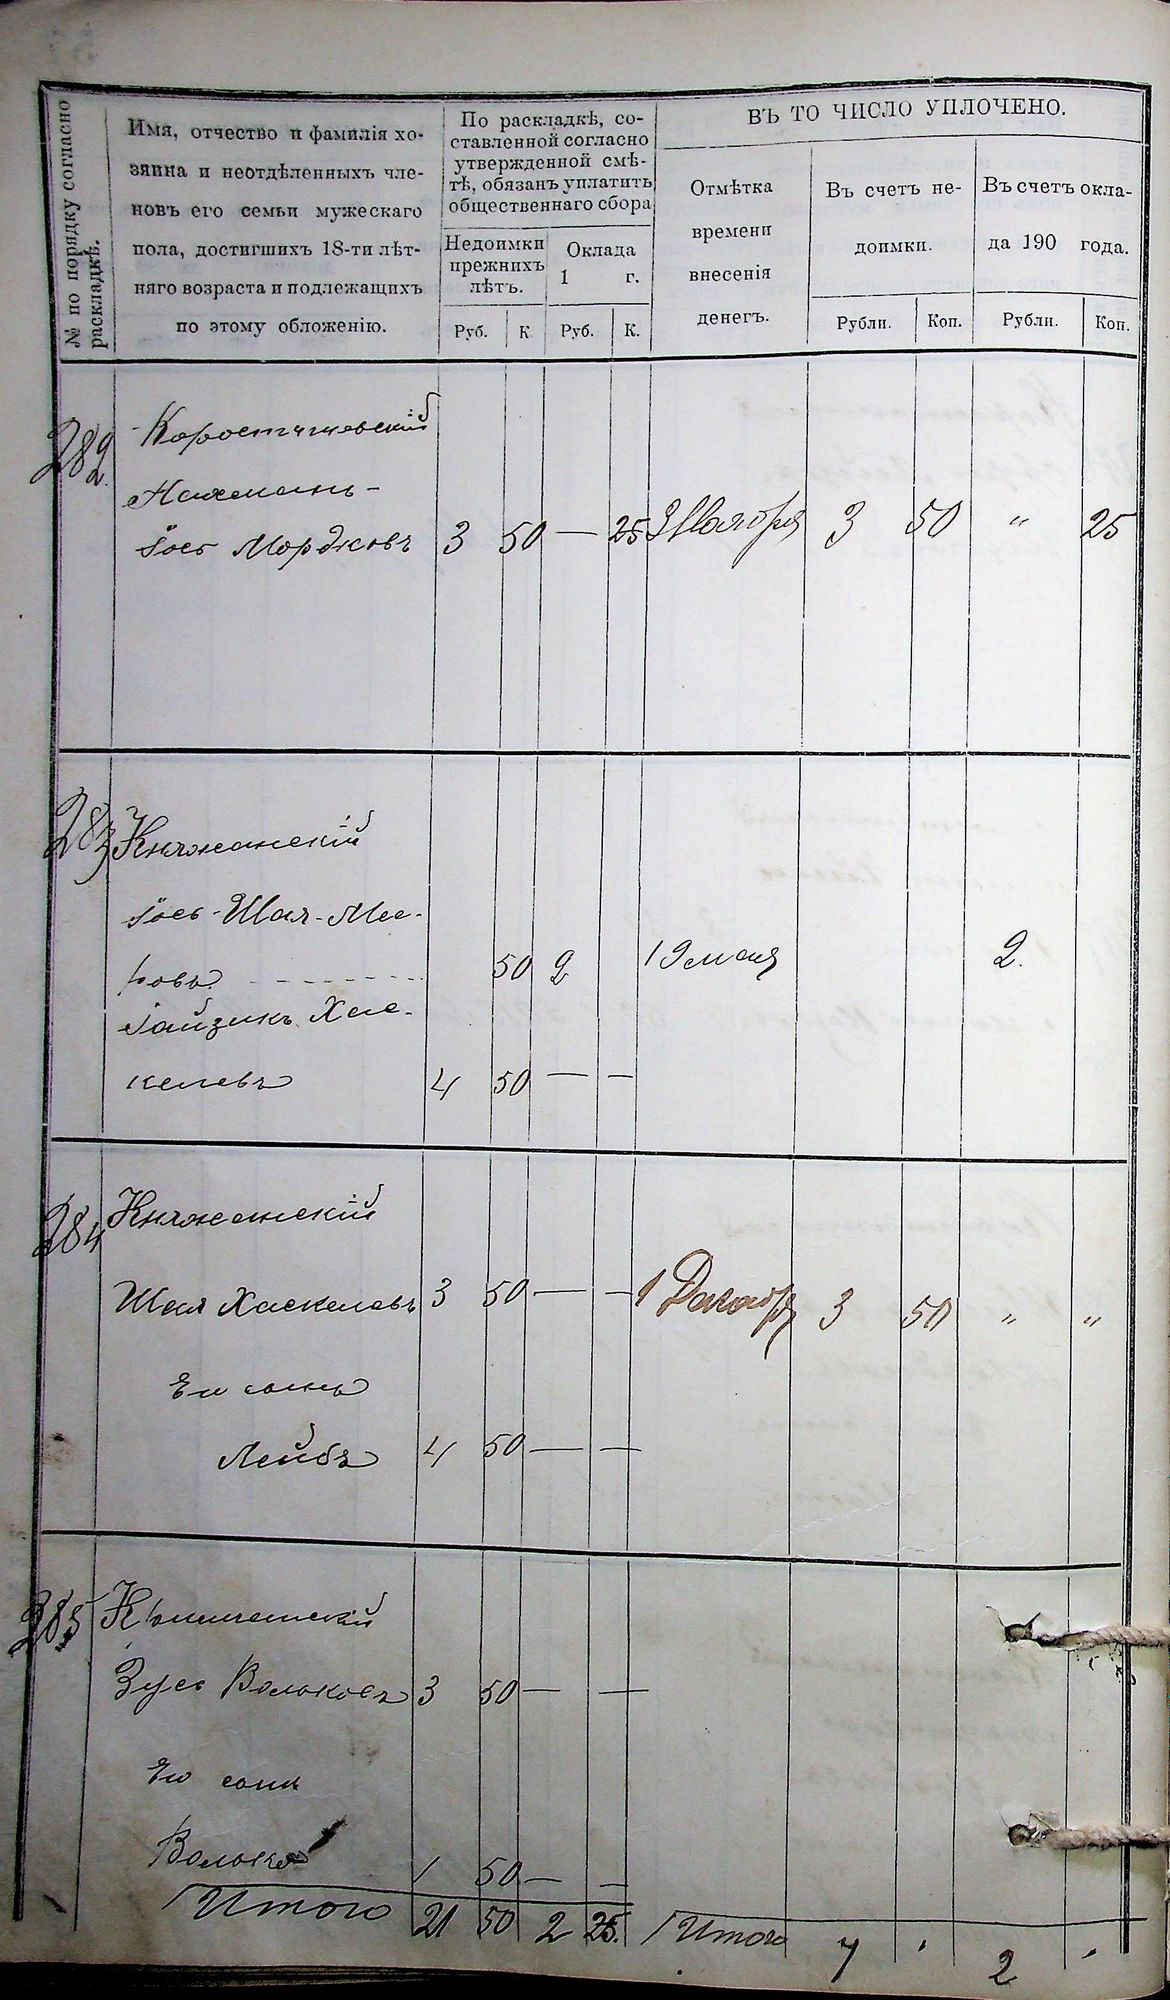 № по порядку согласно
раскладкѣ.
Имя, отчество и фамилія хо-
зяина и неотдѣленныхъ чле-
новъ его семьи мужескаго
пола, достигшихъ 18-ти лѣт-
няго возраста и подлежащихъ
по этому обложенію.
По раскладкѣ, со-
ставленной согласно
утвержденной смѣ-
тѣ, обязанъ уплатить
общественнаго сбора
Недоимки
прежнихъ
лѣтъ.
Оклада
1 г.
Руб. К. Руб. К.
ВЪ ТО ЧИСЛО УПЛОЧЕНО.
Отмѣтка
времени
внесенія
денегъ.
Въ счетъ не-
доимки.
Въ счетъ окла-
да 190 года.
Рубли. Коп. Рубли. Коп.
282 Коростышевскій
Нахманъ-
Іосъ Мордковъ 3 50 — 25 3 Ноября 3 50 " 25
283 Княжанскій
Іосъ-Шая-Мее-
ровъ 50 2 19 мая 2.
Іайзикъ Хас-
келевъ 4 50 — —
284 Княжанскій
Шая Хаскелевъ 3 50 — — 1 Декабря 3 50 " "
Его сынъ
Лейбъ 4 50 — —
285
Зусь Вольковъ 3 50 — —
Его сынъ
Волько 1 50 — —
Итого 21 50 2 25. Итого 7 2